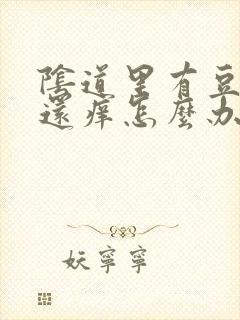 陰道里有豆
還癢怎麼办
妖寧寧